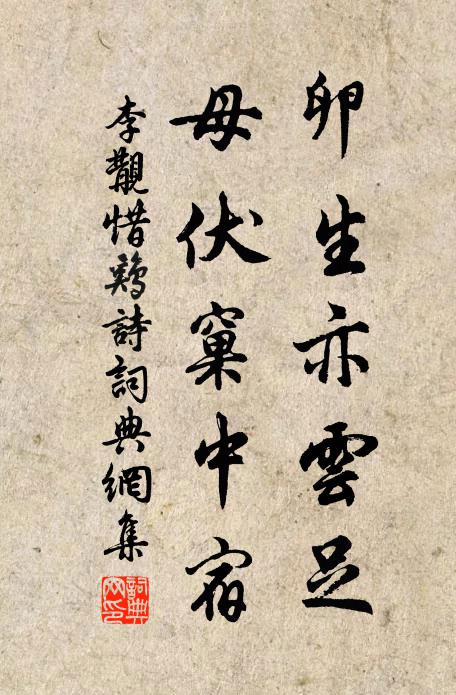 卵生亦雲足
母伏窠中宿
李覯惜鷄詩詞典網集
詞典網印